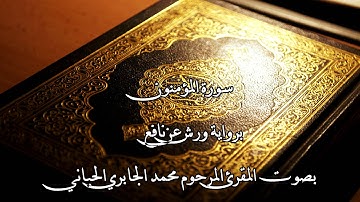 سورة المؤمنون
برواية ورش عن نافع
بصوت المقرئ المرحوم محمد الجابري الحياني